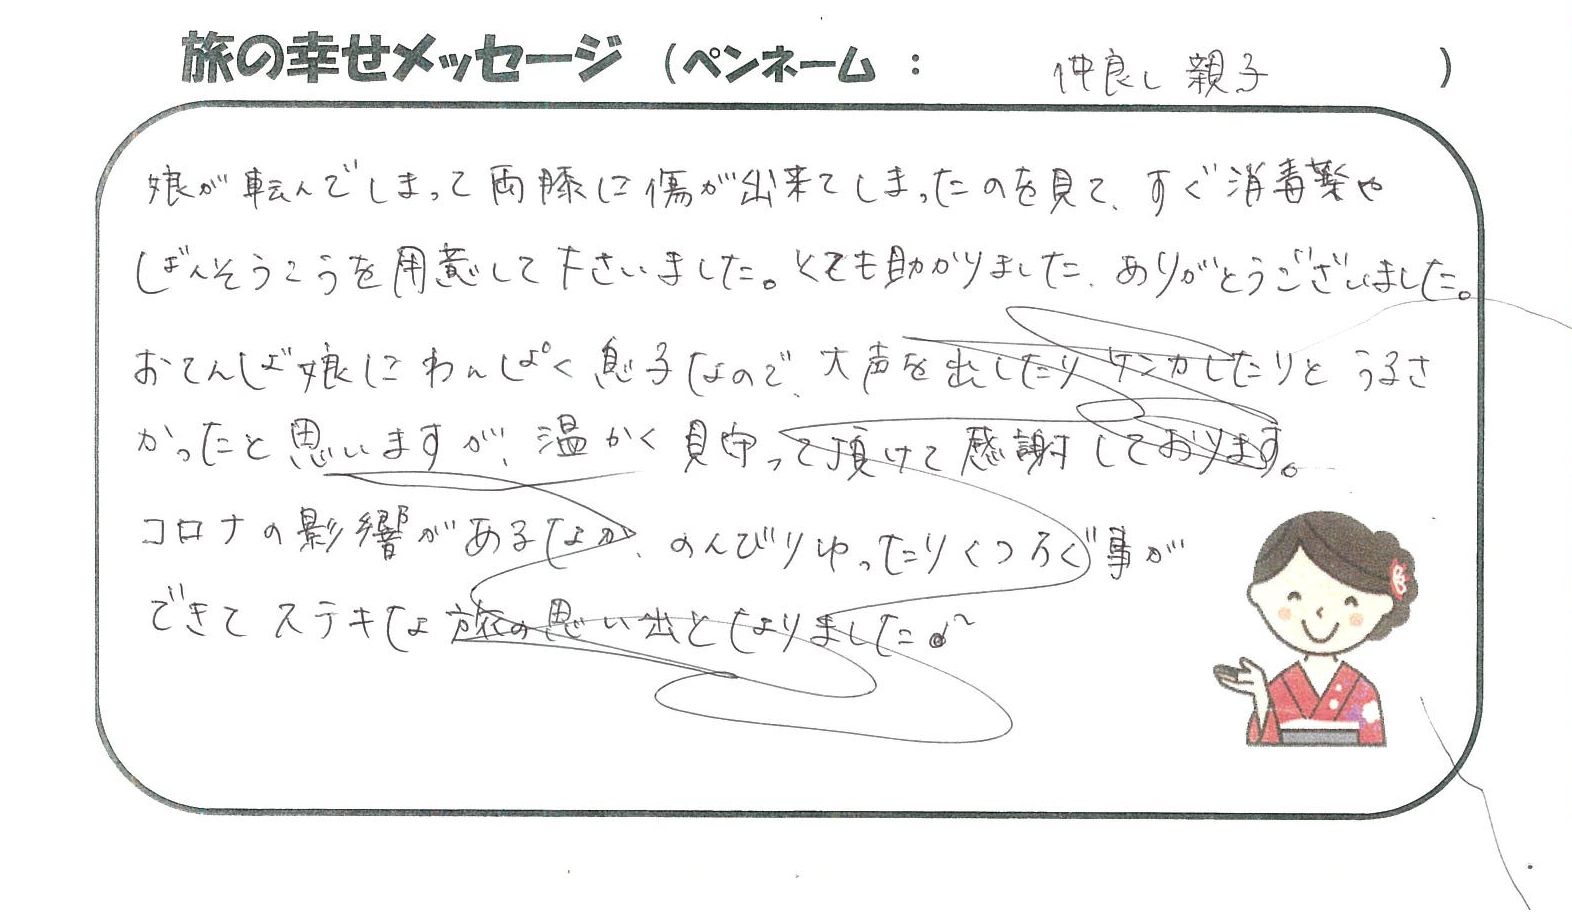 旅の幸せメッセージ (ペンネーム : 仲良し親子 )
娘が転んでしまって両膝に傷が出来てしまったのを見て、すぐ消毒薬や
ばんそうこうを用意して下さいました。とても助かりました、ありがとうございました。
おてんば娘にわんぱく息子なので、大声を出したりケンカしたりとうるさ
かったと思いますが、温かく見守って頂けて感謝しております。
コロナの影響があるなか、のんびりゆったりくつろぐ事が
できてステキな旅の思い出となりました♪